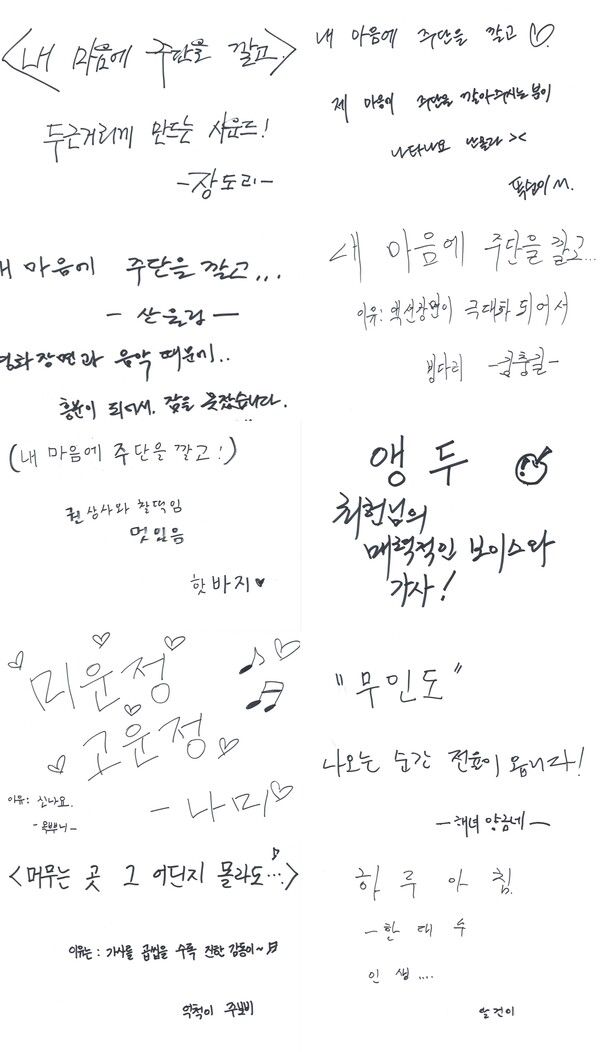 <내 마음에 주단을 깔고>
두근거리게 만드는 사운드!
-장도리-
내 마음에 주단을 깔고 ♡.
제 마음에 주단을 깔아주시는 분이
나타나요 ><
내 마음에 주단을 깔고...
- 산울림 -
영화 장면과 음악 때문에..
흥분이 되어서. 잠을 못잤습니다.
내 마음에 주단을 깔고...
이유: 액션장면이 극대화 되어서
(내 마음에 주단을 깔고!)
권상사와 찰떡임
멋있음
핫바지♥
앵두
최헌님의
매력적인 보이스와
가사!
미운정
고운정
이유: 신나요.
- 나미♡
-옥뿌니-
"무인도"
나오는 순간 전율이 옵니다!
-해녀 양금네-
<머무는 곳 그 어딘지 몰라도...>
이유는: 가사를 곱씹을 수록 진한 감동이~♬
억척이 주보비
하루아침
-한대수
인생....